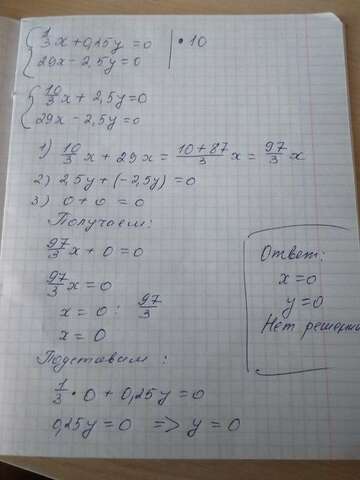 1/3 x + 0,25y = 0 | • 10
29x - 2,5y = 0
10/3 x + 2,5y = 0
29x - 2,5y = 0
1) 10/3 x + 29x = (10 + 87)/3 x = 97/3 x
2) 2,5y + (-2,5y) = 0
3) 0 + 0 = 0
Получаем:
97/3 x + 0 = 0
97/3 x = 0
x = 0 : 97/3
x = 0
Подставим:
1/3 • 0 + 0,25y = 0
0,25y = 0 => y = 0
Ответ:
x = 0
y = 0
Нет решений